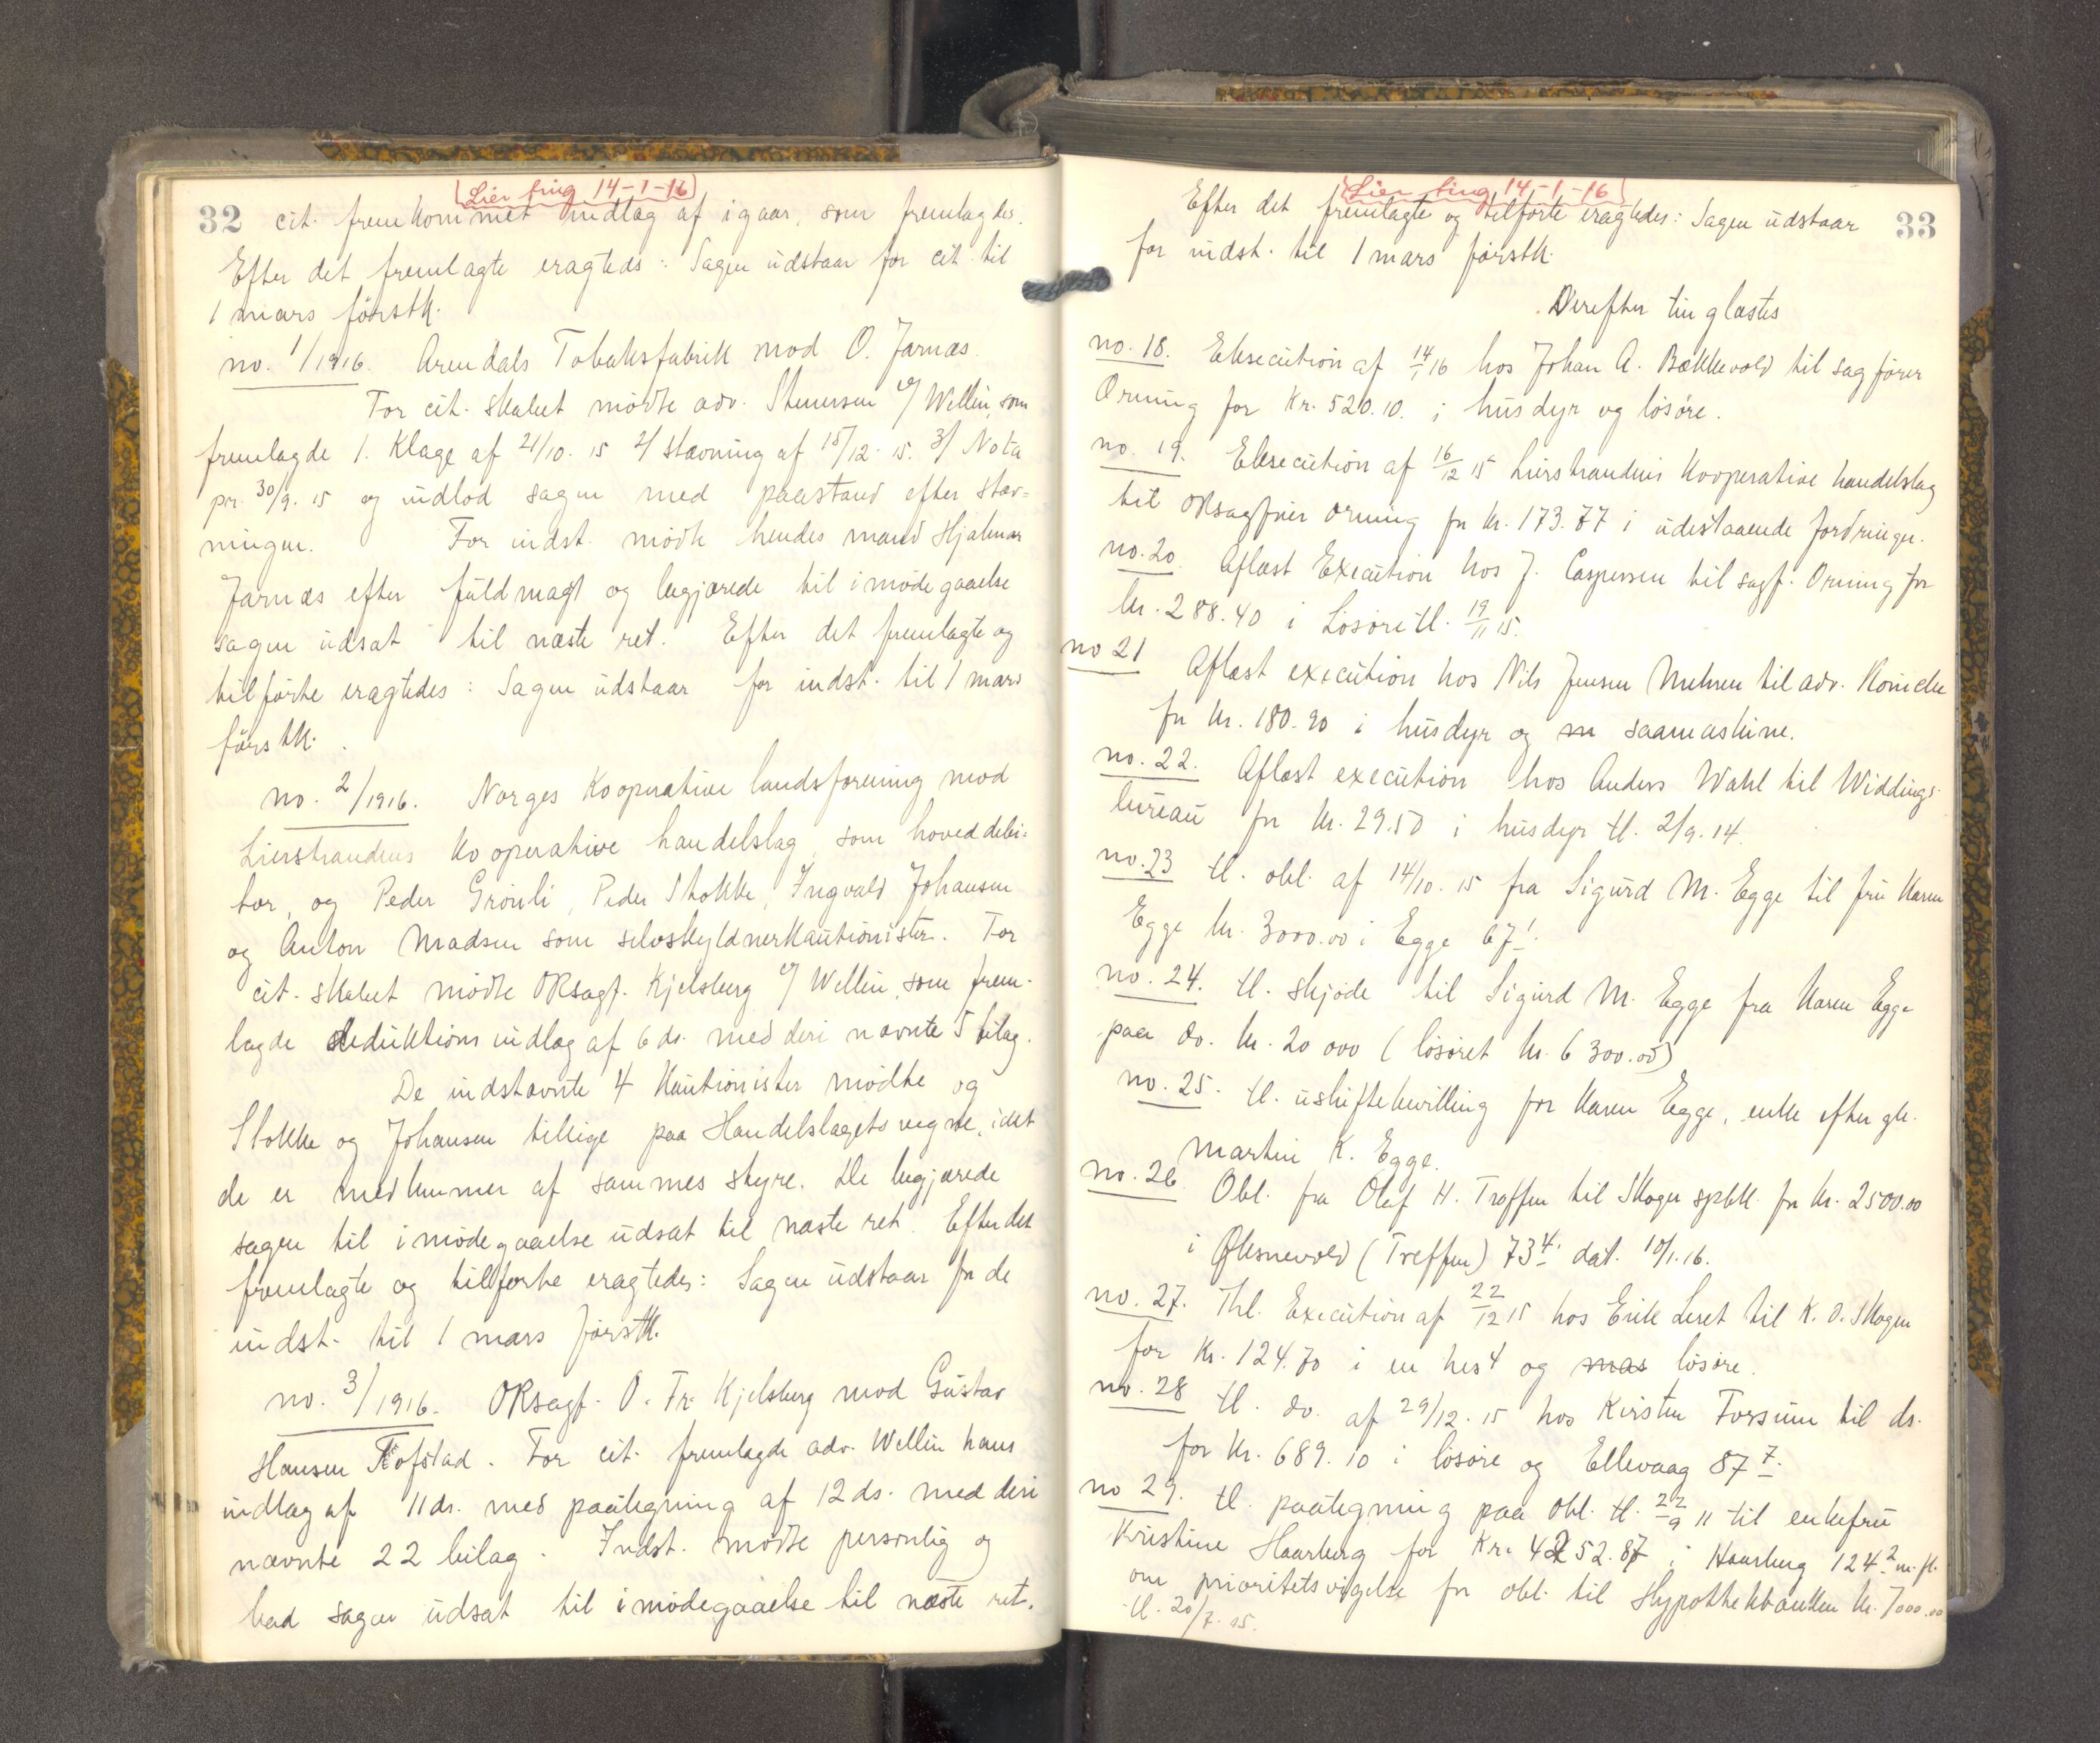 Lier ting 14-1-16
32 cit. fremkommet indlæg af igaar, som fremlagdes.
Efter det fremlagte eragteds: Sagen udstaar for cit. til
1 mars förstk.
no. 1/1916. Arendals Tobaksfabrik mod O. Jarnæs.
For cit. skabet mödte adv. Stenersen v/ Wellin, som
fremlagde 1. Klage af 21/10. 15 2/ stævning af 15/12. 15. 3/ Nota
pr. 30/9. 15 og indlod sagen med paastand efter stæv=
ningen. For indst. mödte hendes mand Hjalmar
Jarnæs efter fuldmagt og begjærede til imödegaaelse
sagen udsat til næste ret. Efter det fremlagte og
tilförte eragtedes: Sagen udstaar for indst. til 1 mars
förstk.
no. 2/1916. Norges Kooperative landsforening mod
Lierstrandens Kooperative handelslag, som hoveddebi=
tor, og Peder Grönli, Peder Stokke, Ingvald Johansen
og Anton Madsen som selvskyldnerkautionister. For
cit. skabet mödte ORsagf. Kjelsberg v/ Wellin, som frem-
lagde deduktionsindlæg af 6 ds. med deri nævnte 5 bilag.
De indstævnte 4 Kautionister mödte og
Stokke og Johansen tillige paa Handelslagets vegne, idet
de er medlemmer af sammes styre. De begjærede
sagen til imödegaaelse udsat til næste ret. Efter det
fremlagte og tilförte eragtedes: Sagen udstaar for de
indst. til 1 mars förstk.
no. 3/1916. ORsagf. O. Fr. Kjelsberg mod Gustav
Hansen Tofstad. For cit. fremlagde adv. Wellin hans
indlæg af 11 ds. med paategning af 12 ds. med deri
nævnte 22 bilag. Indst. mödte personlig og
bad sagen udsat til imödegaaelse til næste ret.
Lier ting 14-1-16
Efter det fremlagte og tilförte eragtedes: Sagen udstaar 33
for indst. til 1 mars förstk.
Derefter tinglæstes
no. 18. Eksecution af 14/1 16 hos Johan A. Bækkevold til sagförer
Orning for Kr. 520.10. i husdyr og lösöre.
no. 19. Eksecution af 16/12 15 Lierstrandens Kooperative handelslag
til ORsagförer Orning for kr. 173.77 i udestaaende fordringer.
no. 20. Aflæst Execution hos J. Caspersen til sagf. Orning for
kr. 288.40 i Lösöre tl. 19/11 15.
no 21 Aflæst execution hos Nils Jensen Mehren til adv. Konicke
for kr. 180.90 i husdyr og saamaskine.
no. 22. Aflæst execution hos Anders Wahl til Widdings
bureau for kr. 29.50 i husdyr tl. 2/9. 14.
no. 23 tl. obl. af 14/10. 15 fra Sigurd M. Egge til fru Karen
Egge kr. 3000.00 i Egge 67 1.
no. 24. tl. skjöde til Sigurd M. Egge fra Karen Egge
paa do. kr. 20 000 (lösöret kr. 6 300.00)
no. 25. tl. uskiftebevilling for Karen Egge, enke efter gbr.
Martin K. Egge.
no. 26. Obl. fra Olaf H. Træffen til Skoger spbk. for kr. 2500.00
i Glesnevold (Treffen) 73 4. dat. 10/1.16.
no. 27. Thl. Execution af 22/12 15 hos Erik Leret til K. O. Skogen
for kr. 124.70 i en hest og mas lösöre.
no. 28 tl. do. af 29/12. 15 hos Kirsten Forsum til ds.
for kr. 689.10 i lösöre og Ellevaag 87 7.
no 29. tl. paategning paa obl. tl. 22/9 11 til enkefru
Kristine Haarberg for Kr. 4252.87 i Haarberg 124 2 m.fl.
om prioritetsvigelse for obl. til Hypothekbanken kr. 7000.00
tl. 20/7. 15.